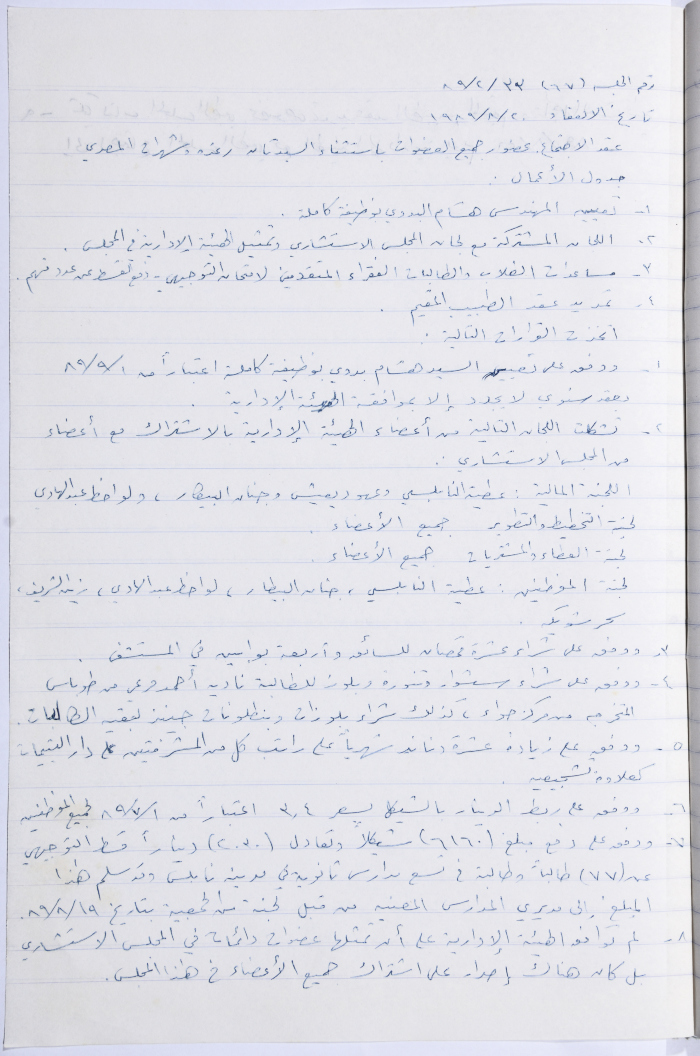 رقم الجلسة (٦٧) ٣٣/٢/٨٩
تاريخ الانعقاد ٢٠/٨/١٩٨٩
عقد الاجتماع بحضور جميع العضوات باستثناء السيدتان رغده وشهرزاد المصري
جدول الأعمال :
١- تعيين المهندس هشام البدوي بوظيفة كاملة .
٢- اللجان المشتركة مع لجان المجلس الاستشاري وتمثيل الهيئة الإدارية في المجلس .
٣- مساعدات الطلاب والطالبات الفقراء المتقدمين لامتحان التوجيهي - دفع قسط عن عدد منهم .
٤- تمديد عقد الطبيب المقيم .
اتخذت القرارات التالية :
١- ووفق على تعيين السيد هشام بدوي بوظيفة كاملة اعتباراً من ١/٩/٨٩
بعقد سنوي لا يجدد إلا بموافقة الهيئة الإدارية .
٢- تشكلت اللجان التالية من أعضاء الهيئة الإدارية بالاشتراك مع أعضاء
من المجلس الاستشاري :
اللجنة المالية : عطية النابلسي وعهود يعيش وحنان البيطار ، ولواحظ عبد الهادي
لجنة التخطيط والتطوير جميع الأعضاء .
لجنة العطاء والمشتريات جميع الأعضاء .
لجنة الموظفين : عطية النابلسي ، حنان البيطار ، لواحظ عبد الهادي ، الشريف ،
سحر شويكه .
٣- ووفق على شراء عشرة قمصان للسائق وأربعة بوابين في المستشفى .
٤- ووفق على شراء سشوار وتنورة وبلوز للطالبة نادية أحمد مرعي من طوباس
المتخرجه من مركز حواء ، كذلك شراء بلوزات وبنطلونات جينز لبقية الطالبات .
٥- ووفق على زيادة عشرة دنانير شهرياً على راتب كل من المشرفتين على دار اليتيمات
كعلاوة تشجيعية .
٦- ووفق على ربط الدينار بالشيكل بسعر ٣,٤ اعتباراً من ١/٧/٨٩ لجميع الموظفين
٧- ووفق على دفع مبلغ (٦١٦٠) شيكلاً وتعادل (٢٠٣٠) ديناراً قسط التوجيهي
عن (٧٧) طالباً وطالبة في تسع مدارس ثانوية في مدينة نابلس وقد سلم هذا
المبلغ إلى مديري المدارس المعنيه من قبل لجنة من الجمعية بتاريخ ١٩/٨/٨٩.
٨- لم توافق الهيئة الإدارية على أن تمثلها عضوات دائمات في المجلس الاستشاري
بل كان هناك إصرار على اشتراك جميع الأعضاء في هذا المجلس .